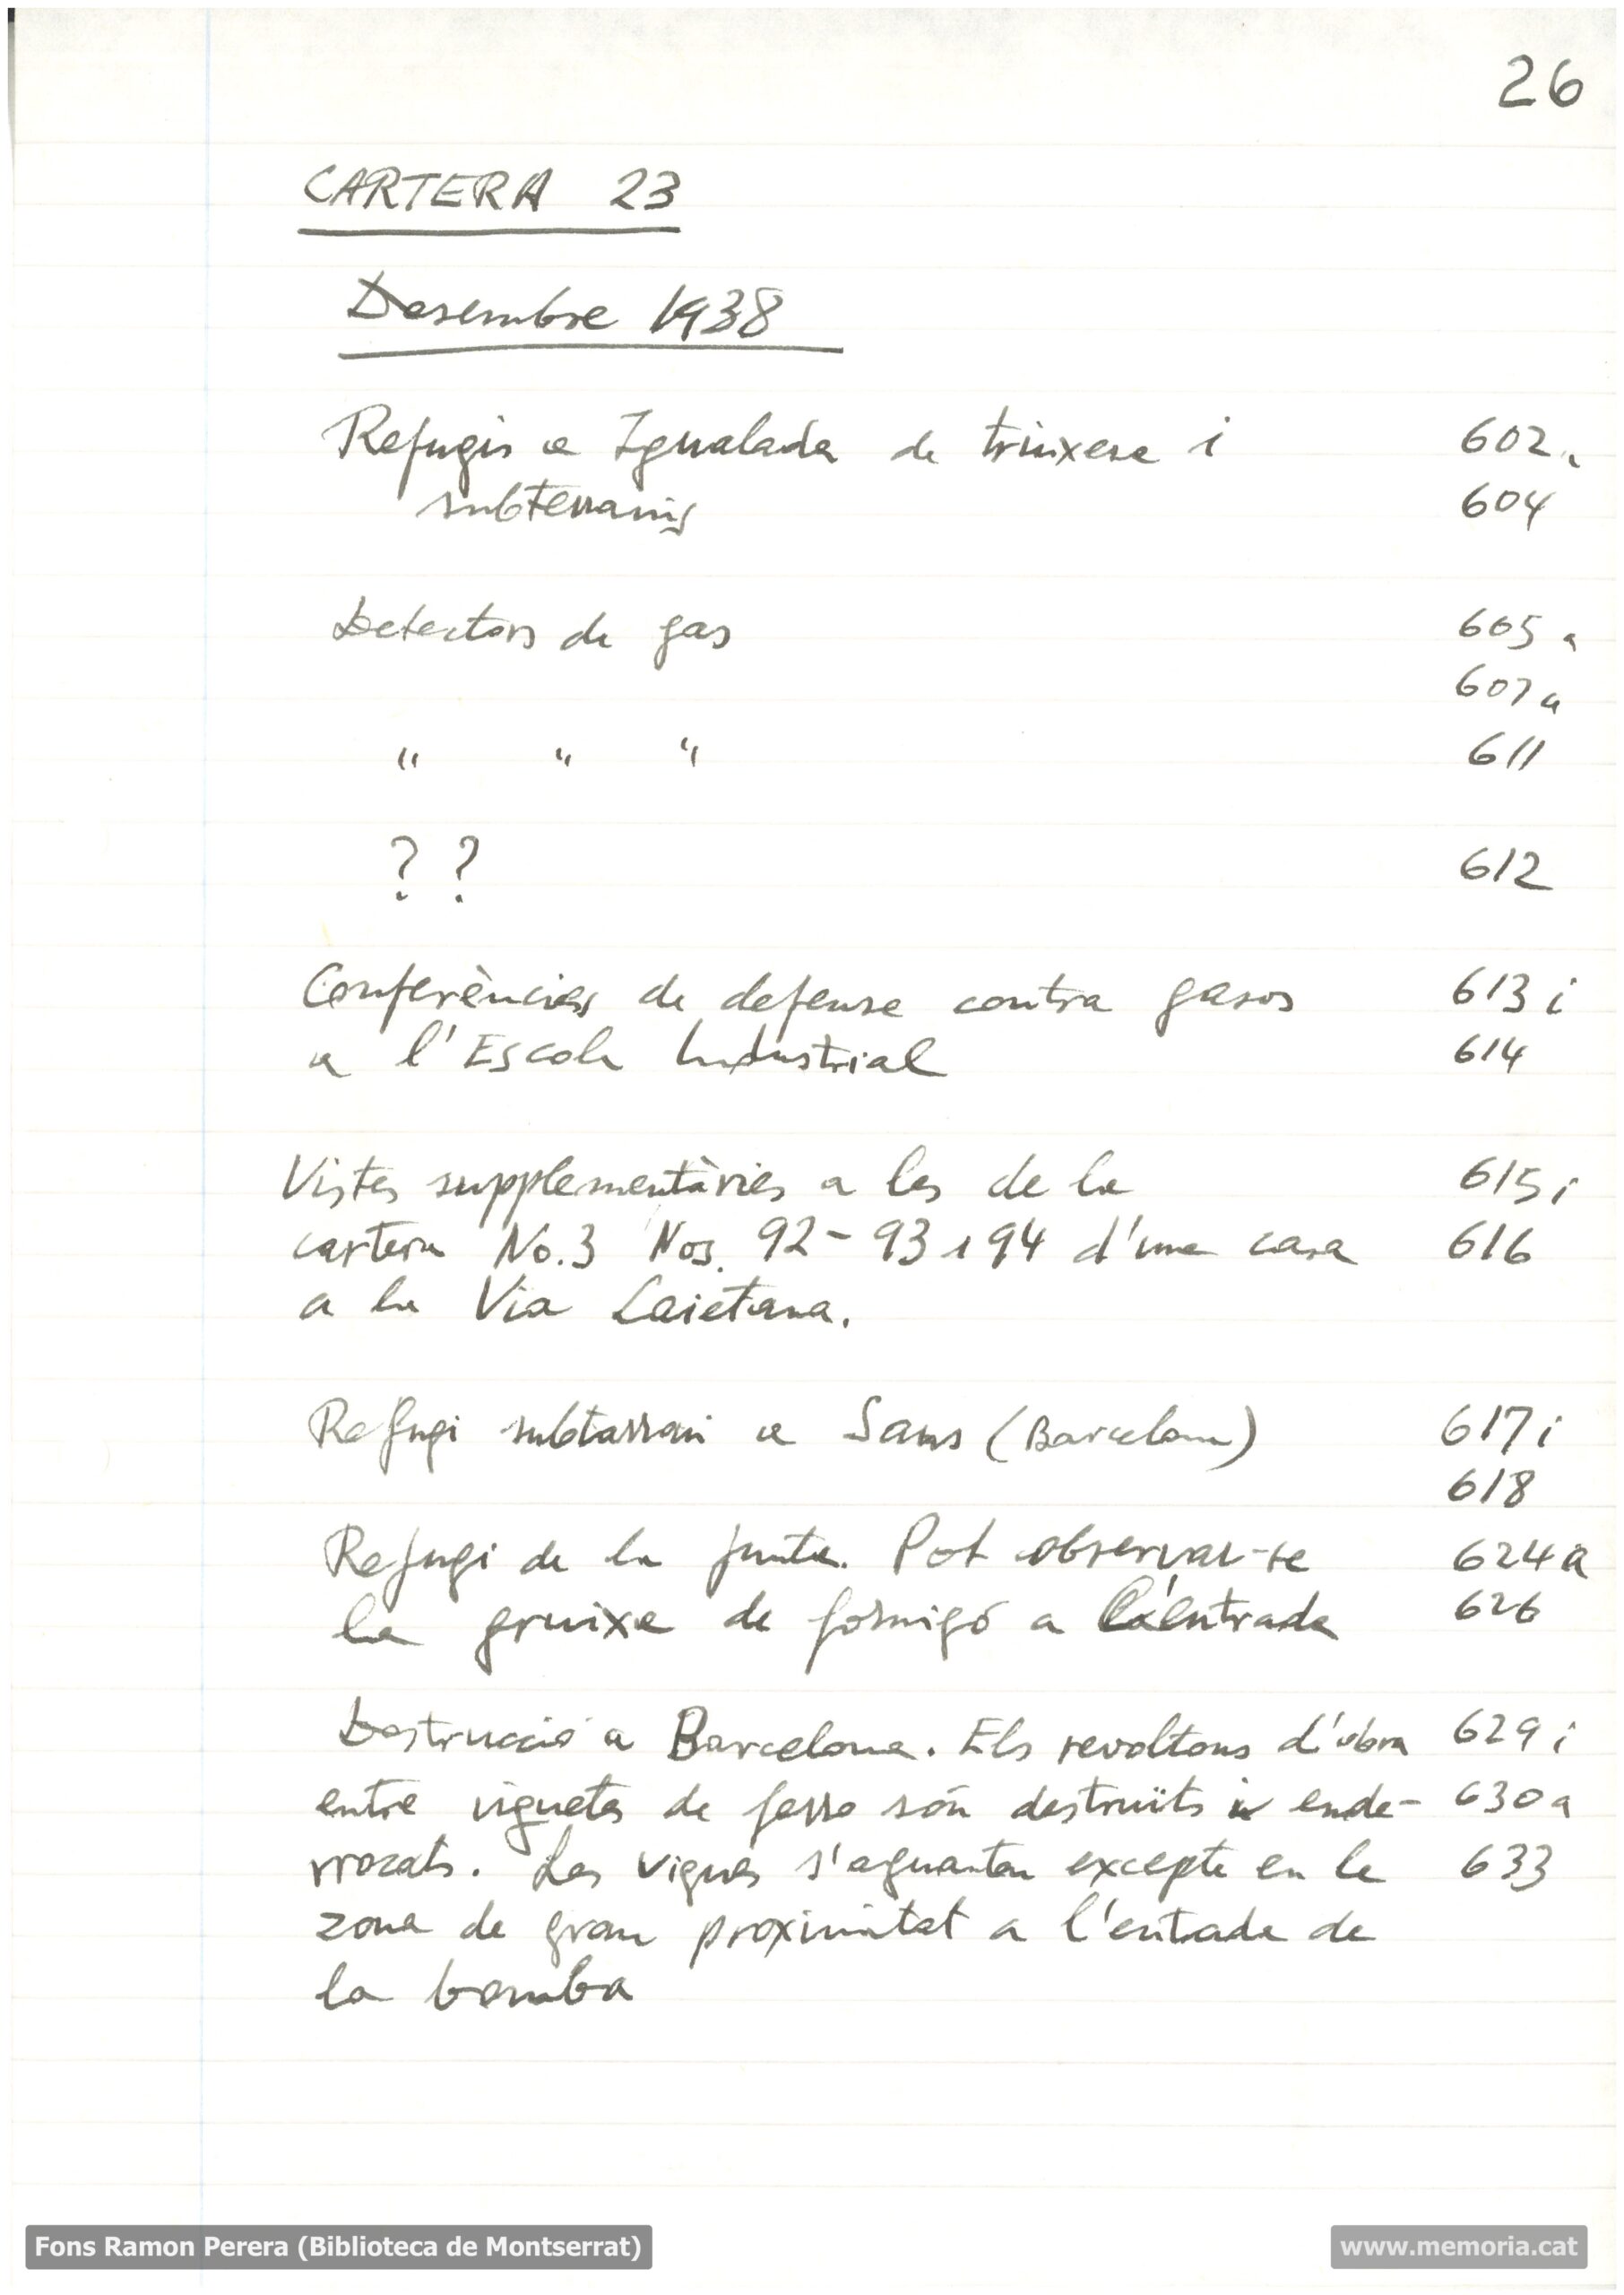 26
CARTERA 23
Desembre 1938
Refugis a Igualada de trinxera i 602 a
subterranis 604
Detectors de gas 605 a
607 a
" " " 611
? ? 612
Conferències de defensa contra gasos 613 i
a l'Escola Industrial 614
Vistes supplementàries a les de la 615 i
cartera No. 3 Nos. 92 - 93 i 94 d'una casa 616
a la Via Laietana.
Refugi subterrani a Sans (Barcelona) 617 i
618
Refugi de la junta. Pot observar-se 624 a
la gruixa de formigó a l'entrada 626
Destrucció a Barcelona. Els revoltons d'obra 629 i
entre viguetes de ferro són destruïts i ende- 630 a
rrocats. Les vigues s'aguanten excepte en la 633
zona de gran proximitat a l'entada de
la bomba
Fons Ramon Perera (Biblioteca de Montserrat) www.memoria.cat